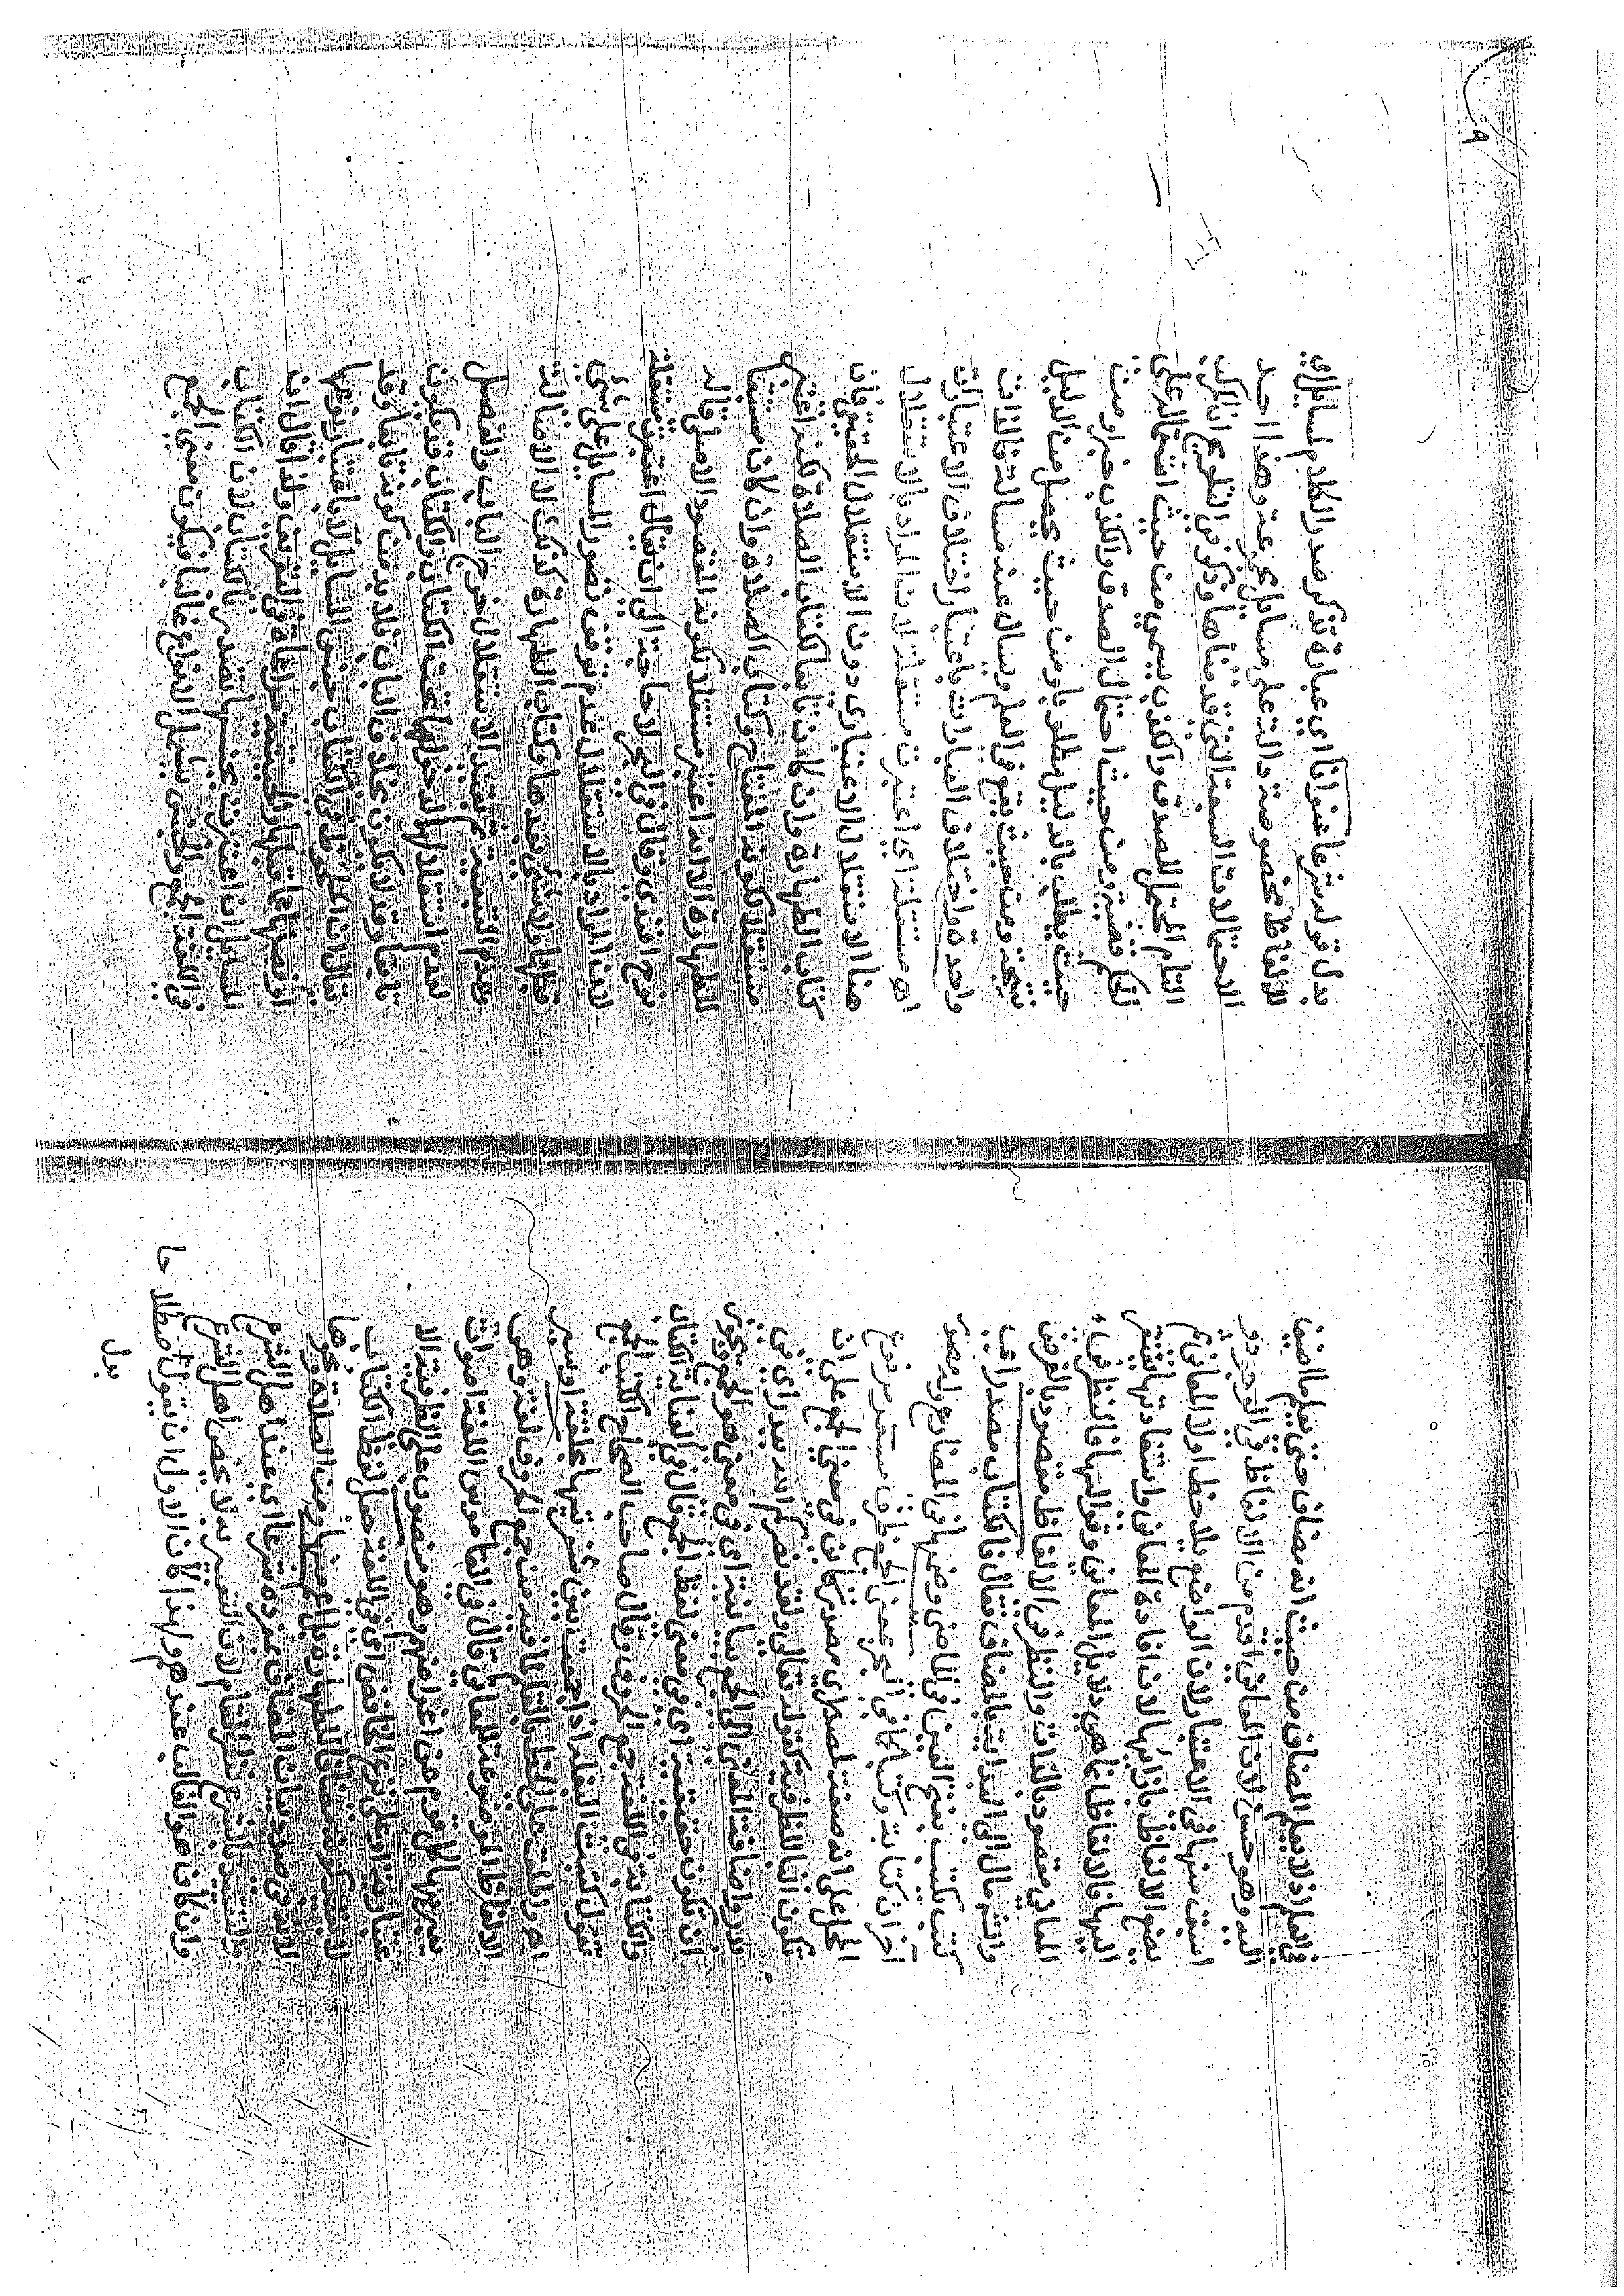 في العلم اذ لا يعلم المضاف من حيث انه مضاف حتى يعلم ما اضيف
اليه وهو حسن لان المعاني اقدم من الالفاظ في الوجود و
اسبق منها في الاعتبار لان الواضع يلاحظ اولا المعاني ثم
يضع الالفاظ بازائها لان افادة المعاني واستفادتها تفتقر
اليها فالالفاظ انما هي دلائل المعاني وقوالبها فالنظر في
المعاني مقصود بالذات والنظر في الالفاظ مقصود بالعرض
مال الى البداية بالمضاف فقال فالكتاب مصدر
كتب يكتب بفتح العين في الماضي وضمها في المضارع وله مصدر
آخران كتابة وكتبا كما في البحر بمعنى الجمع ظرف مستقر مرفوع
المحل على انه صفة لمصدر اي مصدر كائن في معنى الجمع على ان
تكون الباء للظرفية كقوله تعالى ولقد نصركم الله ببدر اي في
بدر واضافة المعنى الى الجمع بيانية اي في معنى هو الجمع ويجوز
ان تكون حقيقية اي في معنى لفظ الجمع قال في العناية الكتاب
والكتابة في اللغة جمع الحروف وقال صاحب الصحاح الكتب الجمع
تقول كتبت البغلة اذا جمعت بين شفريها بحلقة او سير
اهـ واطلقت على الخط بالقلم لما فيه من جمع الحروف لغة وهي
الالفاظ الموضوعة للمعاني قال في القاموس اللغة اصوات
يعبر بها كل قوم عن اغراضهم وهو منصوب على الظرفية الا
عتبارية او على نزع الخافض اي في اللغة جعل لفظ الكتاب
المذكور مضافا للطهارة ومن الصلاة ونحوها
لانه في صدد بيان المضاف بمفرده شرعا اي عند اهل الشرع
والتقييد بالشرع نظرا للمقام لان التعبير به لا يخص اهل الشرع
وان كان هو الغالب عندهم ولهذا كان الاولى ان يقول اصطلاحا
بدل
٩
بدل قوله شرعا عنوانا اي عبارة تذكر صدر الكلام لمسائل اي
لالفاظ مخصوصة دالة على مسائل مجموعة وهذا احد
الاحتمالات السبعة التي قدمناها وذكر في التلويح ان المركب
التام المحتمل للصدق والكذب يسمى من حيث اشتماله على
الحكم قضية ومن حيث احتمال الصدق والكذب خبرا ومن
حيث يطلب بالدليل مطلوبا ومن حيث يحصل من الدليل
نتيجة ومن حيث يقع في العلم ويسال عنه مسالة فالذات
واحدة واختلاف العبارات باعتبار اختلاف الاعتبارات
اهـ مستقلة اي اعتبرت مستقلة لان المراد بالاستقلال
هنا الاستقلال الاعتباري دون الاستقلال الحقيقي فان
كتاب الطهارة وان كان تابعا لكتاب الصلاة لكنه اعتبر
مستقلا لكونه المفتاح وكتاب الصلاة وان كان مستتبعا
للطهارة الا انه اعتبر مستقلا لكونه المقصود الاصلي قاله
نوح افندي وقال في البحر لا حاجة الى ان يقال اعتبرت مستقلة
لان المراد بالاستقلال عدم توقف تصور المسائل على شيء
قبلها ولا شيء بعدها وكتاب الطهارة كذلك لا الاصالة
وعدم التبعية بقيد الاستقلال خرج الباب والفصل
لعدم استقلالهما لدخولهما تحت الكتاب والكتاب قد يكون
تابعا وقد لا يكون بخلاف الباب فلا بد من كونه تابعا وقد
يقال ان الملحوظ في الكتاب جنس المسائل لا باعتبار نوعها
او فصلها عما قبلها والحيثية مراعاة في التعريف ولذا قال ان
المسائل ان اعتبرت بجنسها تصدر بالكتاب لان الكتاب
في اللغة الجمع والجنس يشمل الانواع غالبا فيكون معنى الجمع